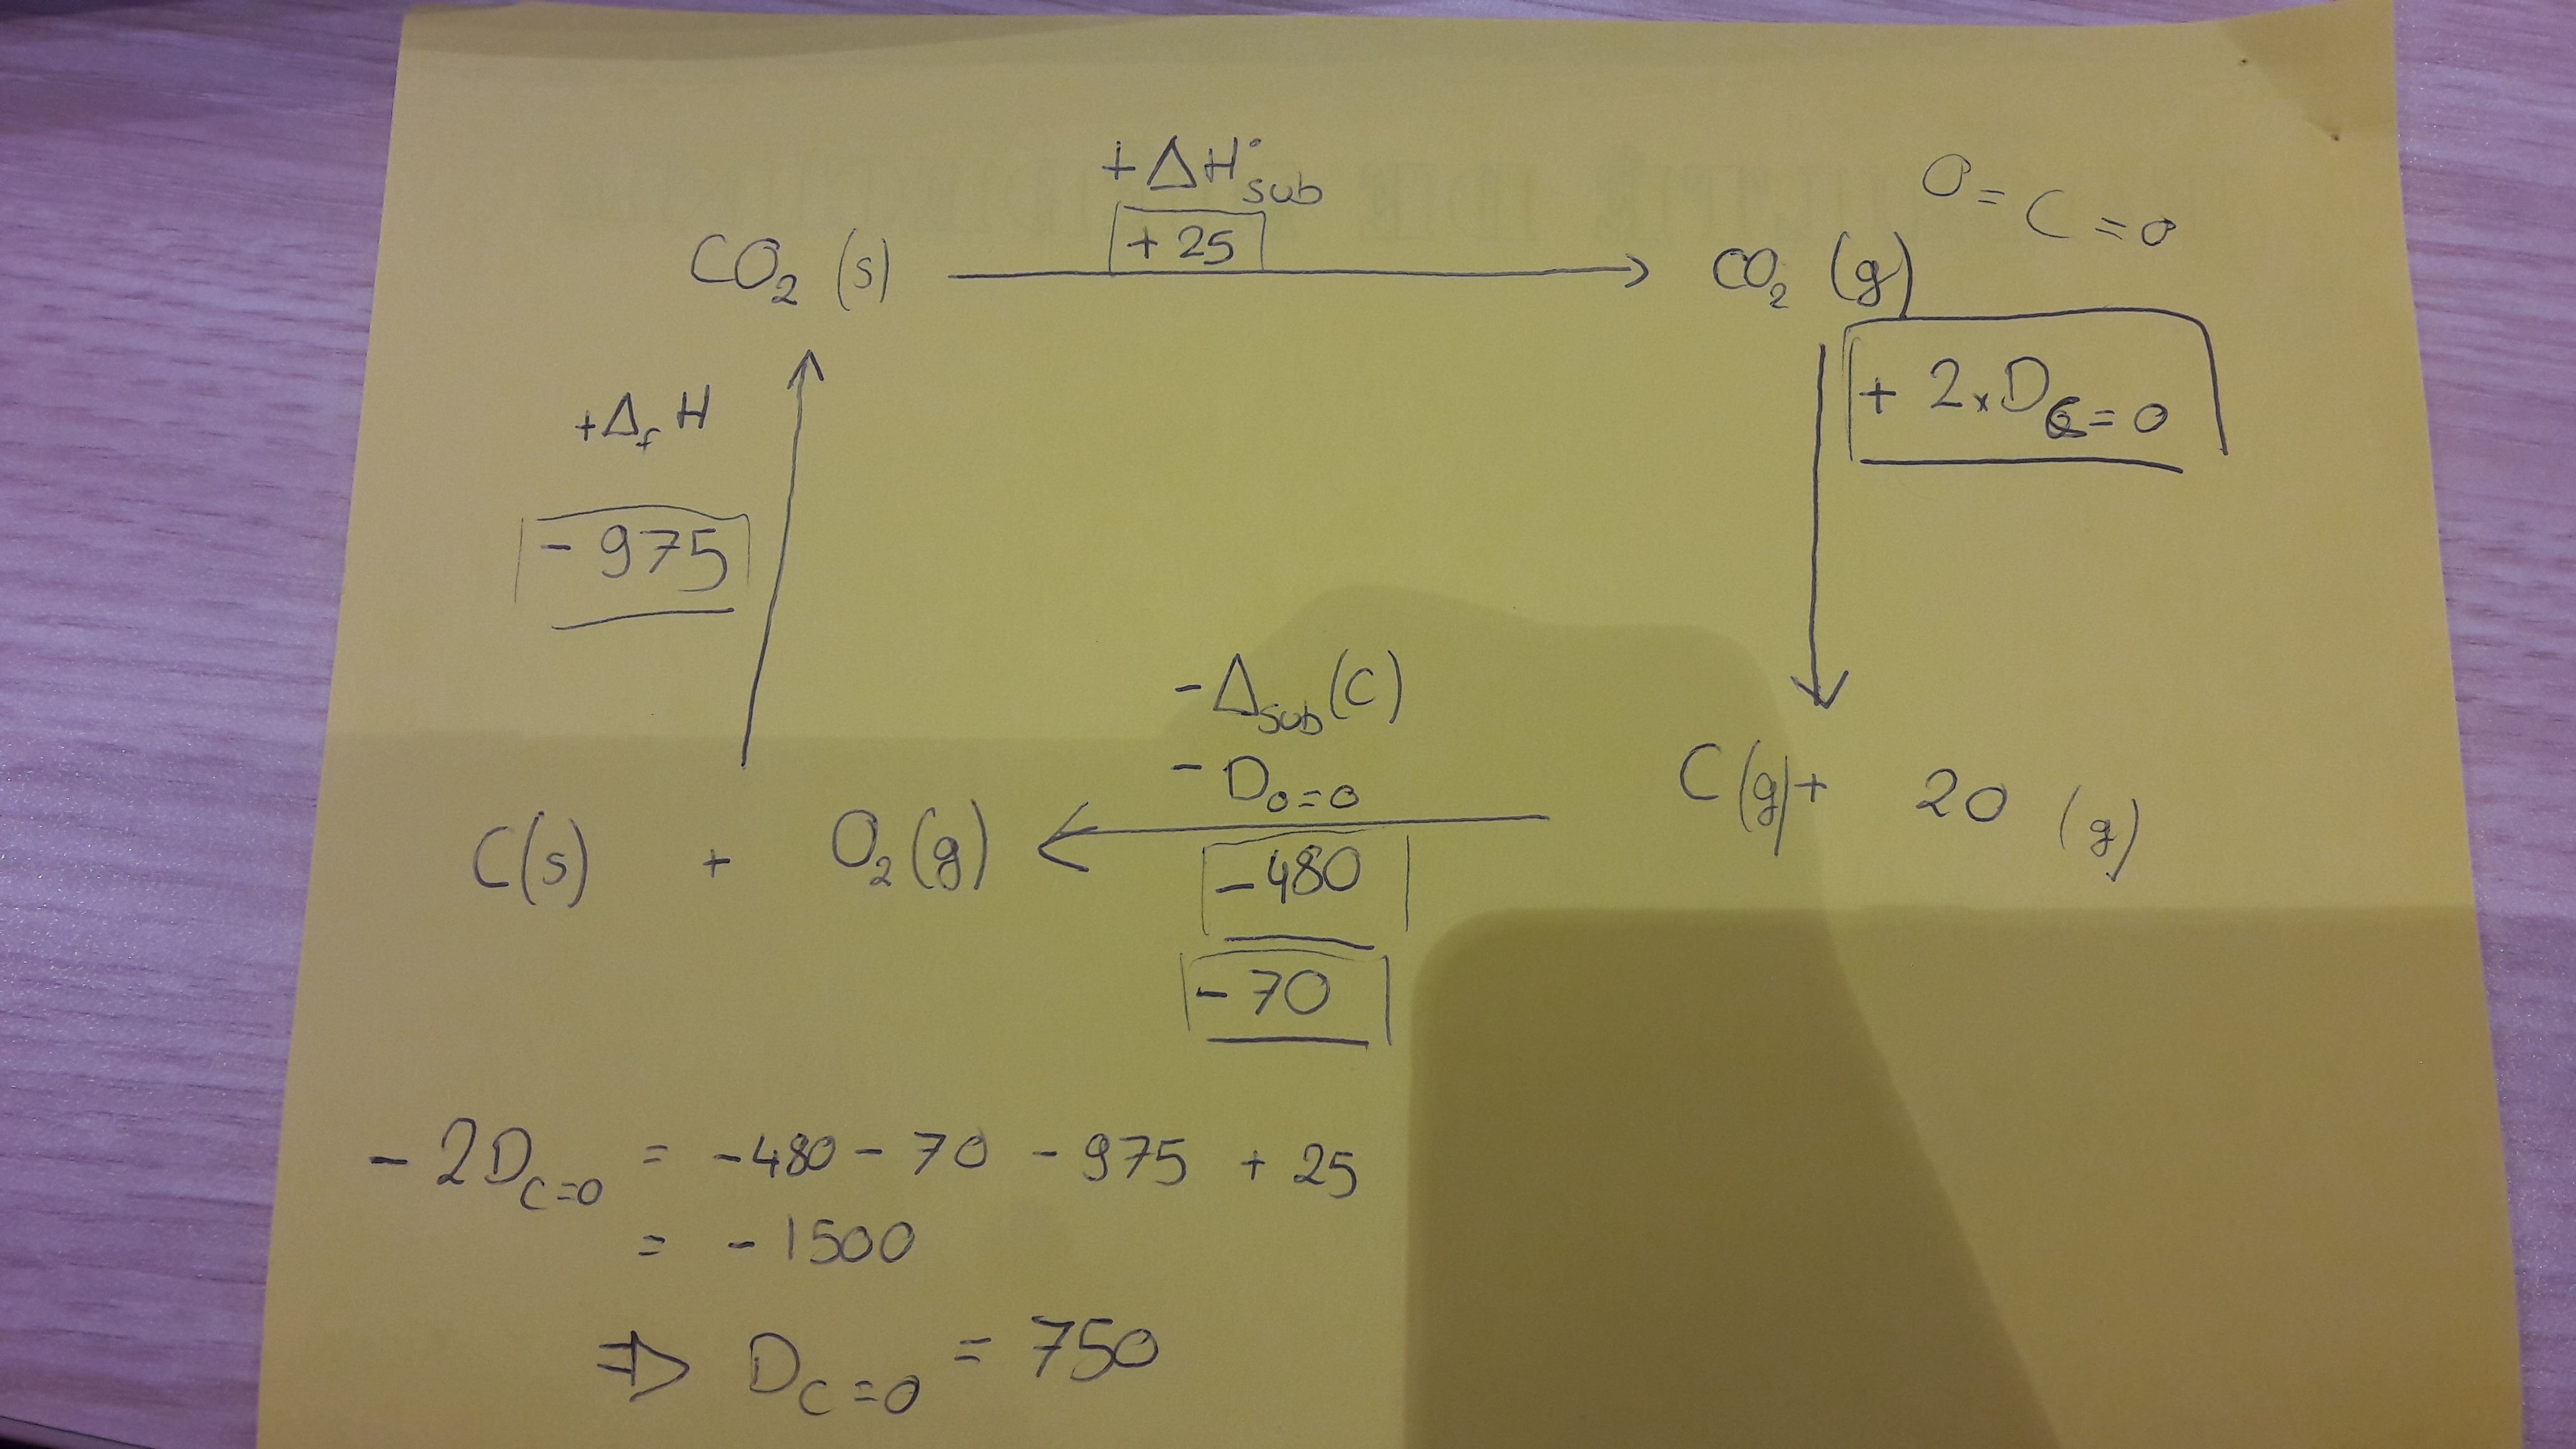 +ΔH°sub
+ 25
O = C = O
CO₂ (s)
CO₂ (g)
+ 2 x D C = O
+ΔfH
- 975
- Δsub(C)
- D O=O
C(s) + O₂(g)
C(g) + 2O (g)
- 480
- 70
- 2D C=O = -480 - 70 - 975 + 25
= - 1500
⇒ D C=O = 750